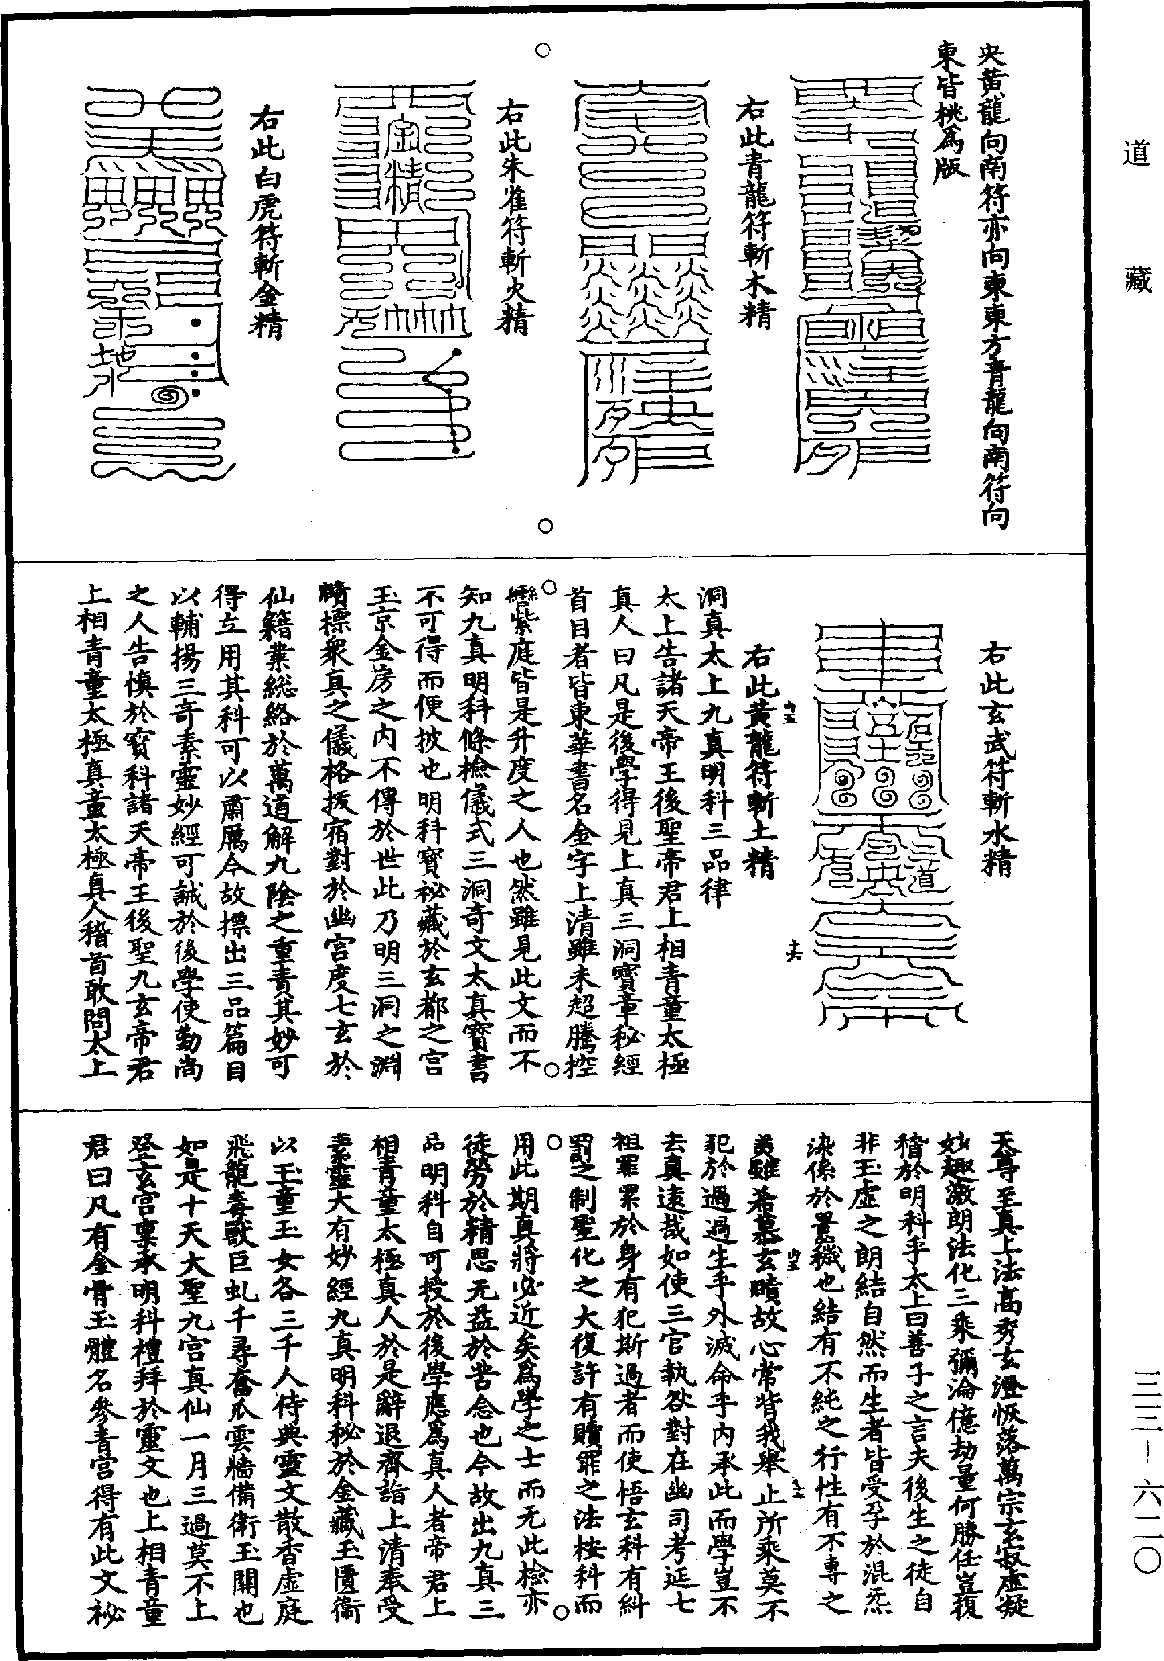 道藏
央黃龍向南符亦向東東方青龍向南符向
東皆桃為版
右此青龍符斬木精
右此朱雀符斬火精
金精
右此白虎符斬金精
地水
右此玄武符斬水精
右此黃龍符斬土精
洞真太上九真明科三品律
太上告諸天帝王後聖帝君上相青童太極
真人曰凡是後學得見上真三洞寶章秘經
首目者皆東華書名金字上清雖未超騰控
轡紫庭皆是升度之人也然雖見此文而不
知九真明科條檢儀式三洞奇文太真寶書
不可得而便披也明科寶祕藏於玄都之宮
玉京金房之內不傳於世此乃明三洞之淵
賾標眾真之儀格拔宿對於幽宮度七玄於
仙籍業総絡於萬道解九陰之重責其妙可
得立用其科可以肅厲今故摽出三品篇目
以輔揚三奇素靈妙經可誡於後學使勤尚
之人告慎於寶科諸天帝王後聖九玄帝君
上相青童太極真童太極真人稽首敢問太上
天尊至真上法高秀玄澄恢落萬宗玄寂虛凝
妙趣激朗法化三乘彌淪億劫量何勝任豈復
稽於明科乎太上曰善子之言夫後生之徒自
非玉虛之朗結自然而生者皆受孕於混炁
染係於罿穢也結有不純之行性有不專之
美雖希慕玄賾故心常背我舉止所乘莫不
犯於過過生乎外滅命乎內承此而學豈不
去真遠哉如使三官執欲對在幽司考延七
祖罪累於身有犯斯過者而使悟玄科有糾
罰之制聖化之大復許有贖罪之法按科而
用此期真將必近矣為學之士而无此檢亦
徒勞於精思无益於苦念也今故出九真三
品明科自可授於後學應為真人者帝君上
相青童太極真人於是辭退齋詣上清奉受
素靈大有妙經九真明科秘於金藏玉匱衛
以玉童玉女各三千人侍典靈文散香虛庭
飛龍毒獸巨虬千尋奮爪雲牆備衛玉闕也
如是十天大聖九宮真仙一月三過莫不上
登玄宮稟承明科禮拜於靈文也上相青童
君曰凡有金骨玉體名參青宮得有此文祕
三三-六二〇